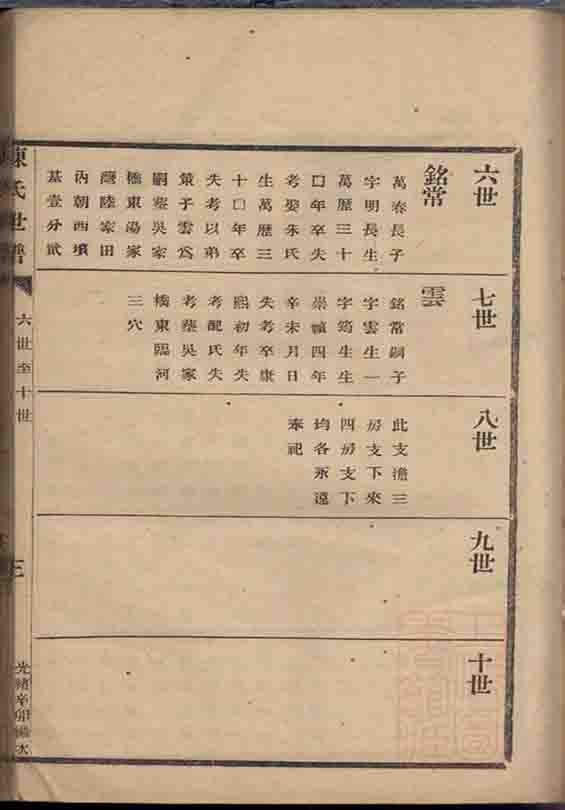 六世
銘常
萬春長子
字明長生
萬歷三十
囗年卒失
考娶朱氏
生萬歷三
十囗年卒
失考以弟
策子雲爲
嗣葬吳家
橋東湯家
灣陸家田
內朝西墳
基壹分貳
七世
雲
銘常嗣子
字雲生一
字筠生生
崇禎四年
辛未月日
失考卒康
熙初年失
考配氏失
考葬吳家
橋東臨河
三穴
八世
此支澹三
房支下來
四房支下
均各永遠
奉祀
九世
十世
陳氏世譜
六世至十世
三
光緒辛卯